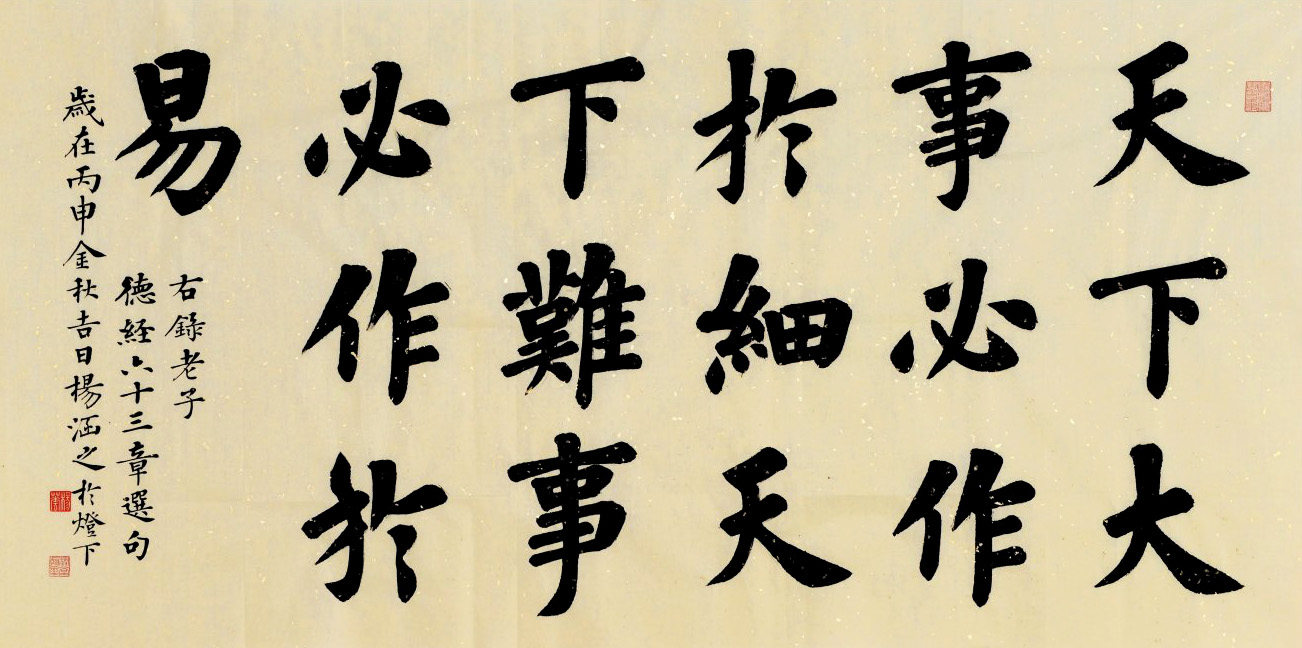 天下大
事必作
於細天
下難事
必作於
易
右錄老子
德經六十三章選句
歲在丙申金秋吉日楊涵之於燈下